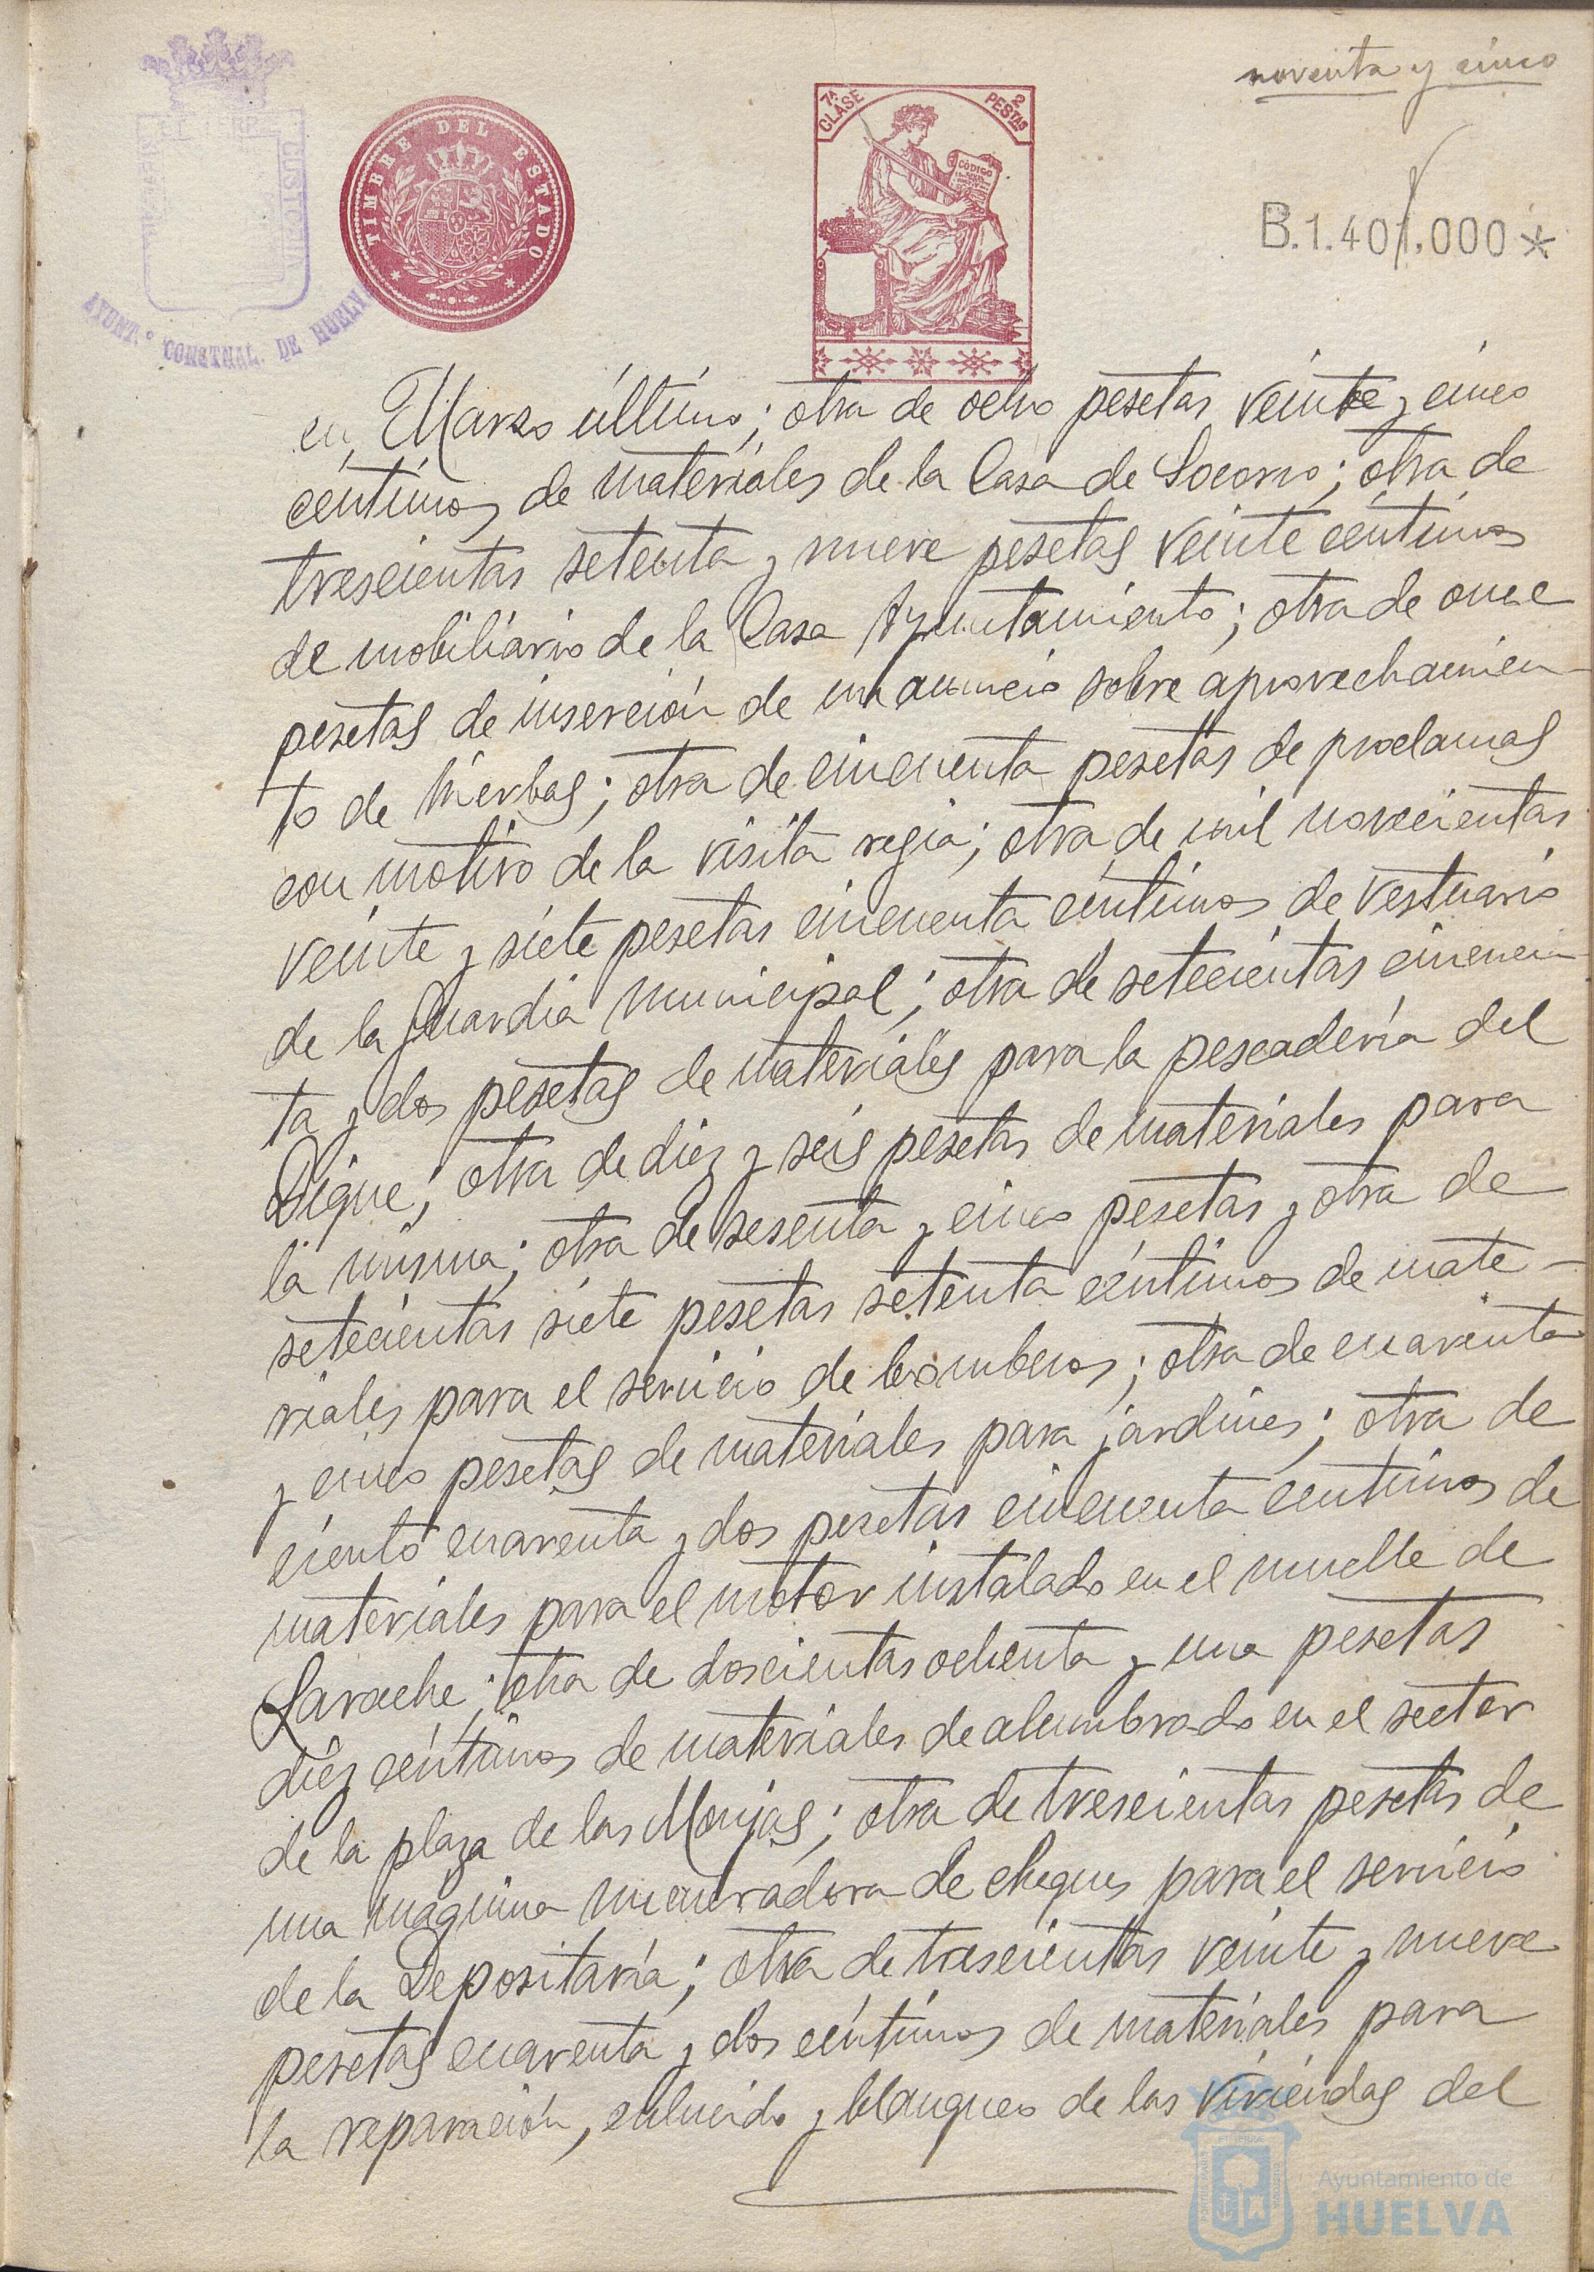 noventa y cinco
TIMBRE DEL ESTADO
7ª CLASE
2 PESTAS
CODIGO
B.1.401.000*
AYUNT.º CONSTNAL. DE HUELVA
en Marzo último; otra de ocho pesetas veinte y cinco
céntimos de materiales de la Casa de Socorro; otra de
trescientas setenta y nueve pesetas veinte céntimos
de mobiliario de la Casa Ayuntamiento; otra de once
pesetas de inserción de un anuncio sobre aprovechamien-
to de hierbas; otra de cincuenta pesetas de proclamas
con motivo de la visita regia; otra de mil novecientas
veinte y siete pesetas cincuenta céntimos de vestuario
de la Guardia municipal; otra de setecientas cincuen-
ta y dos pesetas de materiales para la pescadería del
Dique; otra de diez y seis pesetas de materiales para
la misma; otra de sesenta y cinco pesetas y otra de
setecientas siete pesetas setenta céntimos de mate-
riales para el servicio de bomberos; otra de cuarenta
y cinco pesetas de materiales para jardines; otra de
ciento cuarenta y dos pesetas cincuenta centimos de
materiales para el motor instalado en el muelle de
Larache; otra de doscientas ochenta y una pesetas
diez céntimos de materiales de alumbrado en el sector
de la plaza de las Monjas; otra de trescientas pesetas de
una maquina numeradora de cheques para el servicio
de la Depositaría; otra de trescientas veinte y nueve
pesetas cuarenta y dos céntimos de materiales para
la reparación, enlucido y blanqueo de las viviendas del
Ayuntamiento de
HUELVA